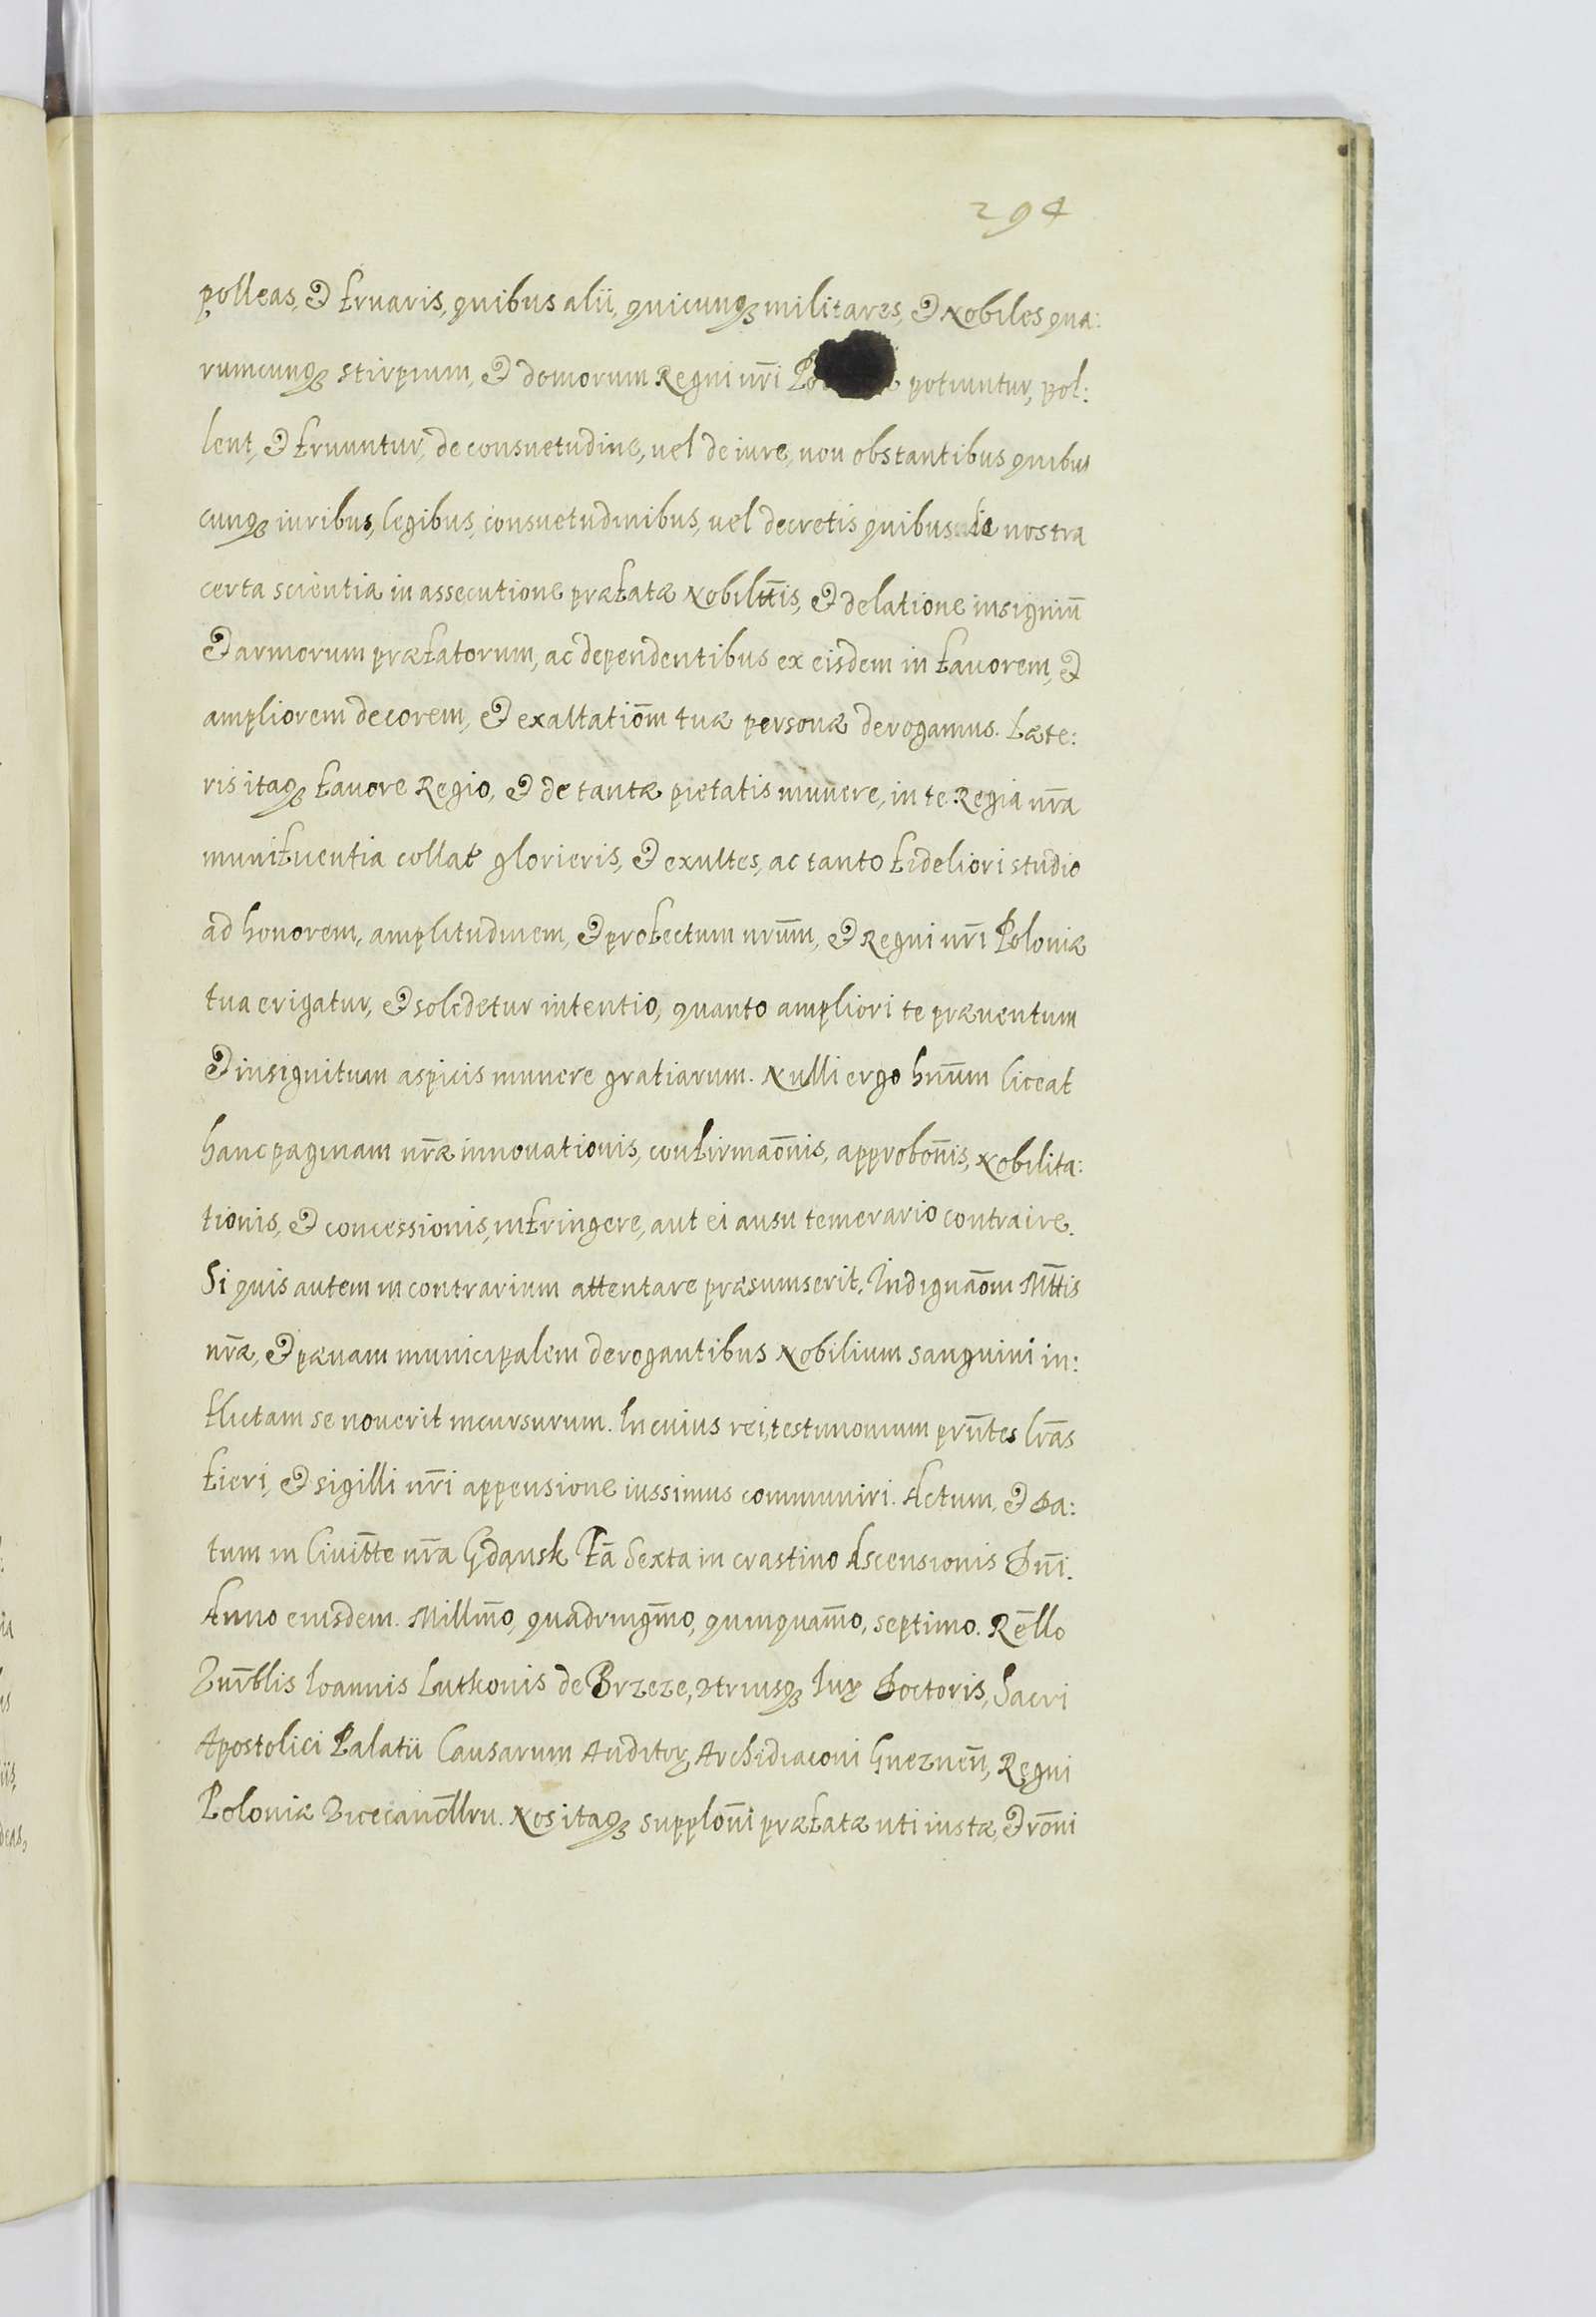 294
polleas, & fruaris, quibus alii, quicunq₃ militares, & Nobiles qua:
rumcunq₃ stirpium, & domorum Regni nr̄i potiuntur, pol:
lent, & fruuntur, de consuetudine, vel de iure, non obstantibus quibus
cunq₃ iuribus, legibus, consuetudinibus, vel decretis quibus de nostra
certa scientia in assecutione præfatæ Nobilit̄is, & delatione insigniū
& armorum præfatorum, ac dependentibus ex eisdem in favorem, &
ampliorem decorem, & exaltatiōm tuæ personæ derogamus. Læte:
ris itaq₃ favore Regio, & de tantæ pietatis munere, in te Regia nr̄a
munifventia collat glorieris, & exultes, ac tanto fideliori studio
ad honorem, amplitudinem, & profectum nrūm, & Regni nr̄i Poloniæ
tua erigatur, & solidetur intentio, quanto ampliori te præventum
& insignitum aspicis munere gratiarum. Nulli ergo hnūm liceat
hanc paginam nr̄æ innovationis, confirmaōnis, approbōnis, Nobilita:
tionis, & concessionis, infringere, aut ei ausu temerario contraire.
Si quis autem in contrarium attentare præsumserit, Indignaōm Mtt̄is
nr̄æ, & pænam municipalem derogantibus Nobilium sanguini in:
flictam se noverit incursurum. In cuius rei, testimonium prn̄tes lrās
fieri, & sigilli nr̄i appensione iussimus communiri. Actum, & Da:
tum in Civitt̄e nr̄a Gdansk Fā Sexta in crastino Ascensionis Dn̄i.
Anno eiusdem. Millm̄o, quadringm̄o, quinquam̄o, septimo. Rēllo
Vnr̄blis Ioannis Lutkonis de Brzeze, Vtriusq₃ Iuꝝ Doctoris, Sacri
Apostolici Palatii Causarum Auditoꝝ, Archidiaconi Gneznen̄, Regni
Poloniæ Vicecancd̄lru. Nos itaq₃ supplōni præfatæ uti iustæ, & rōni